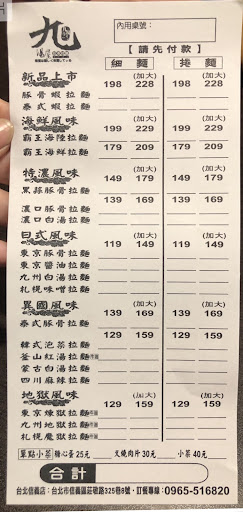 九
湯屋
內用桌號：
【請先付款】
細麵 捲麵
新品上市 (加大) (加大)
198 228 198 228
豚骨蝦拉麵
泰式蝦拉麵
海鮮風味 (加大) (加大)
199 229 199 229
霸王海陸拉麵
179 209 179 209
霸王海鮮拉麵
特濃風味 (加大) (加大)
149 179 149 179
黑蒜豚骨拉麵
139 169 139 169
濃口豚骨拉麵
濃口白湯拉麵
日式風味 (加大) (加大)
119 149 119 149
東京豚骨拉麵
東京醬油拉麵
九州白湯拉麵
札幌味噌拉麵
異國風味 (加大) (加大)
139 169 139 169
泰式豚骨拉麵
129 159 129 159
韓式泡菜拉麵
釜山紅湯拉麵
蒙古白湯拉麵
四川麻辣拉麵
地獄風味 (加大) (加大)
129 159 129 159
東京煉獄拉麵
九州地獄拉麵
札幌魔獄拉麵
單點小菜 糖心蛋 25元 叉燒肉片 30元 小菜 40元
合計
台北信義店：台北市信義區莊敬路325巷8號・訂餐專線：0965-516820